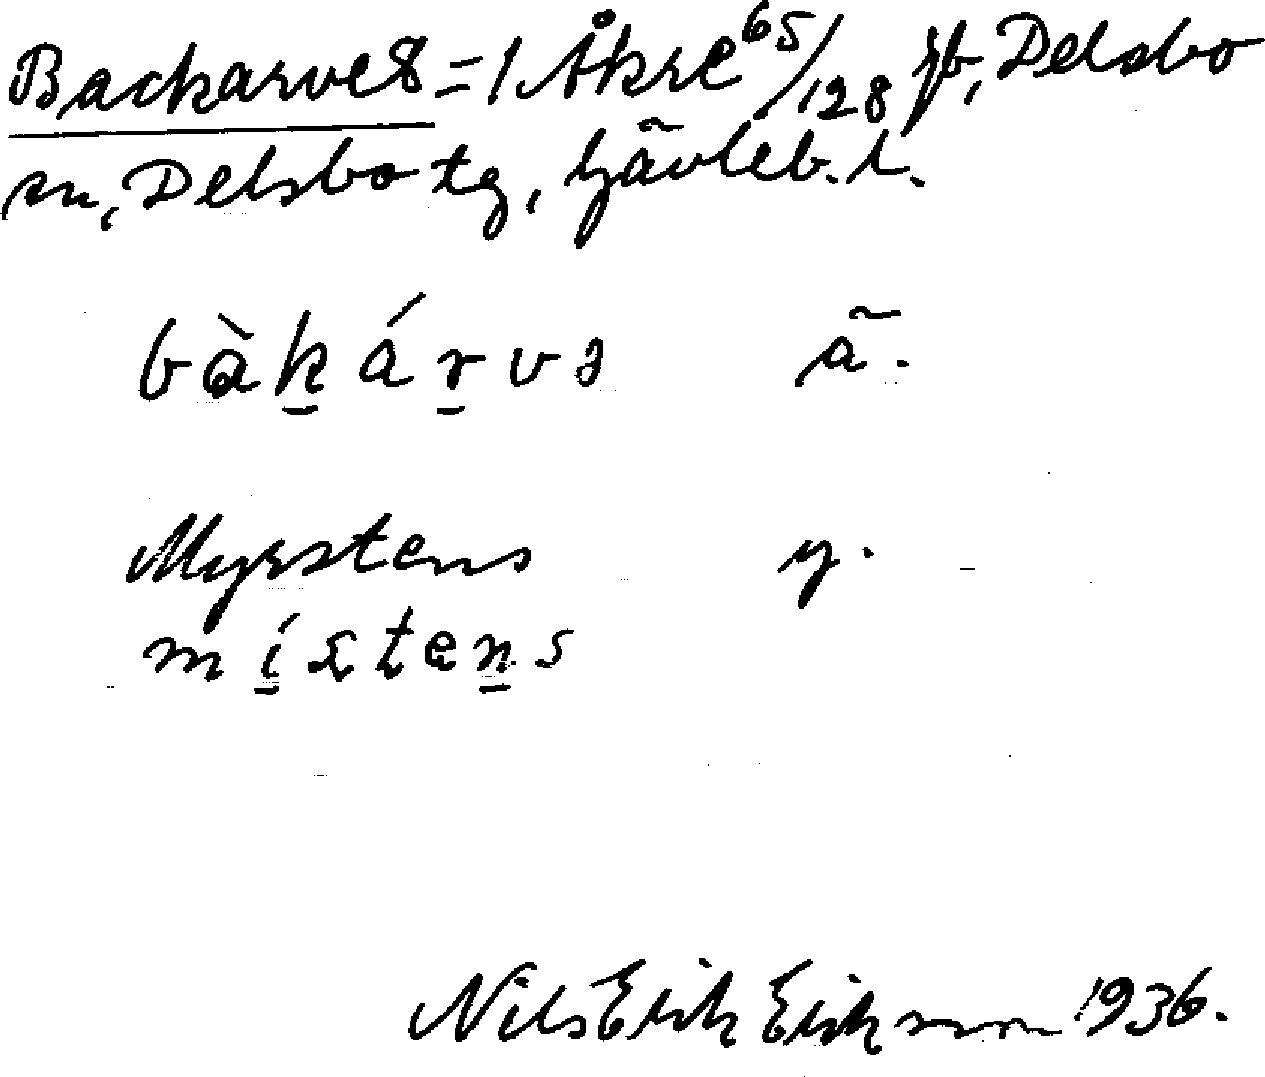 Backarve 8 = 1 Åkre 65/128 jb, Delsbo
sn, Delsbo tg, Gävleb. l.
bàḵáṟvə ä.
Myrstens y.
mí̱steṉs
Nils Erik Erikson 1936.